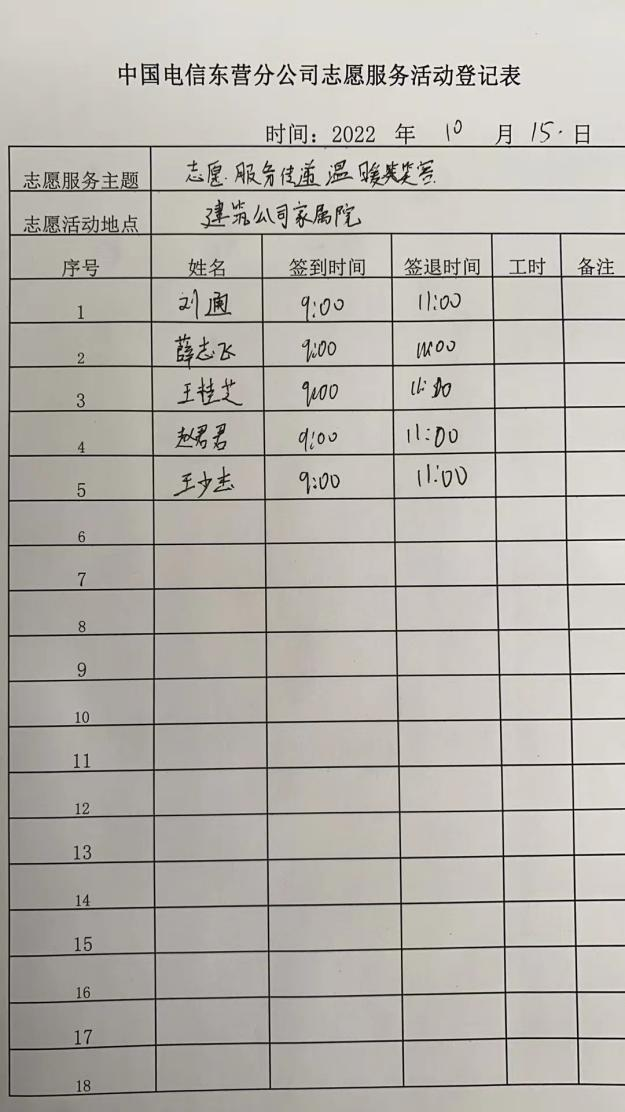 中国电信东营分公司志愿服务活动登记表
时间：2022 年 10 月 15. 日
志愿服务主题 志愿服务传递温暖
志愿活动地点 建筑公司家属院
序号 姓名 签到时间 签退时间 工时 备注
1 刘 9:00 11:00
2 薛志飞 9:00 11:00
3 王桂芝 9:00 11:00
4 赵君君 9:00 11:00
5 王少杰 9:00 11:00
6
7
8
9
10
11
12
13
14
15
16
17
18